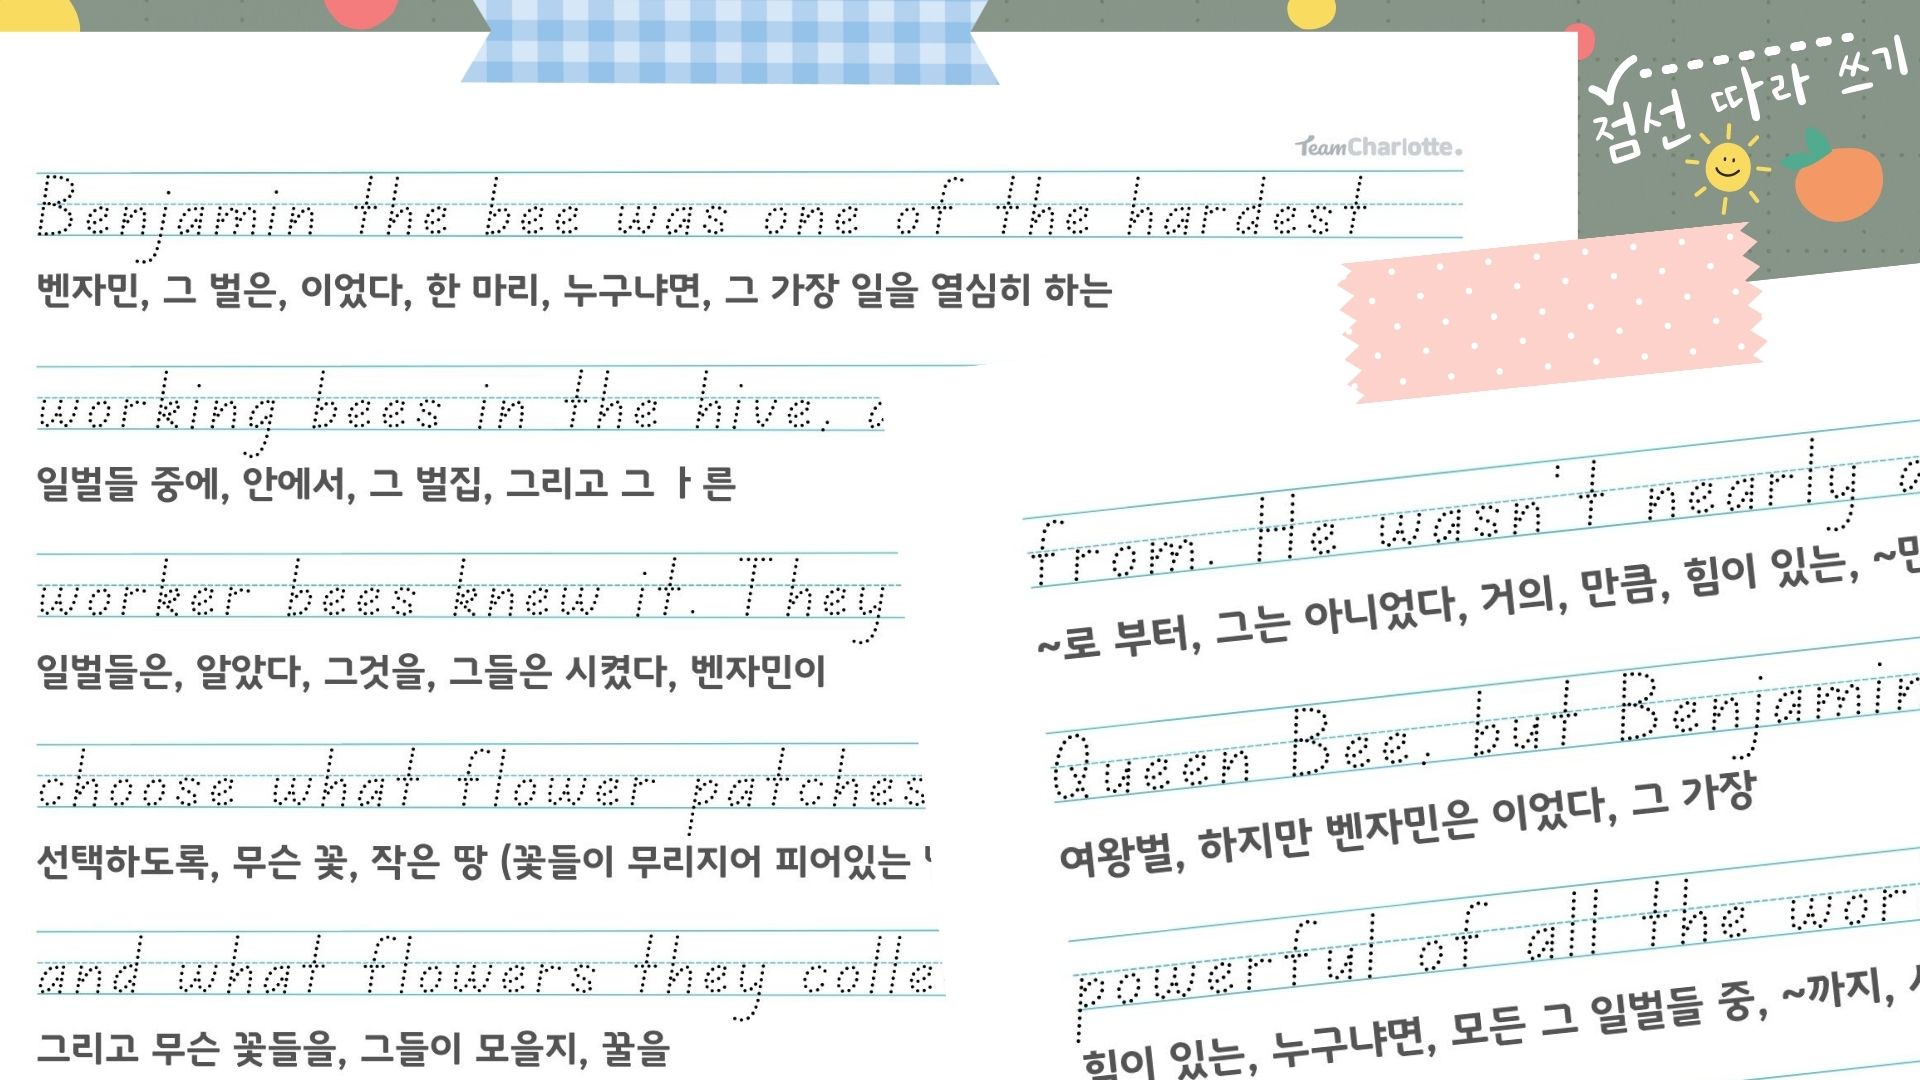 점선 따라 쓰기
TeamCharlotte.
Benjamin the bee was one of the hardest
벤자민, 그 벌은, 이었다, 한 마리, 누구냐면, 그 가장 일을 열심히 하는
working bees in the hive,
일벌들 중에, 안에서, 그 벌집, 그리고 그
worker bees knew it. They
일벌들은, 알았다, 그것을, 그들은 시켰다, 벤자민이
choose what flower patches
선택하도록, 무슨 꽃, 작은 땅 (꽃들이 무리지어 피어있는
and what flowers they colle
그리고 무슨 꽃들을, 그들이 모을지, 꿀을
from. He wasn't nearly
~로 부터, 그는 아니었다, 거의, 만큼, 힘이 있는,
Queen Bee, but Benjamin
여왕벌, 하지만 벤자민은 이었다, 그 가장
powerful of all the wor
힘이 있는, 누구냐면, 모든 그 일벌들 중, ~까지,